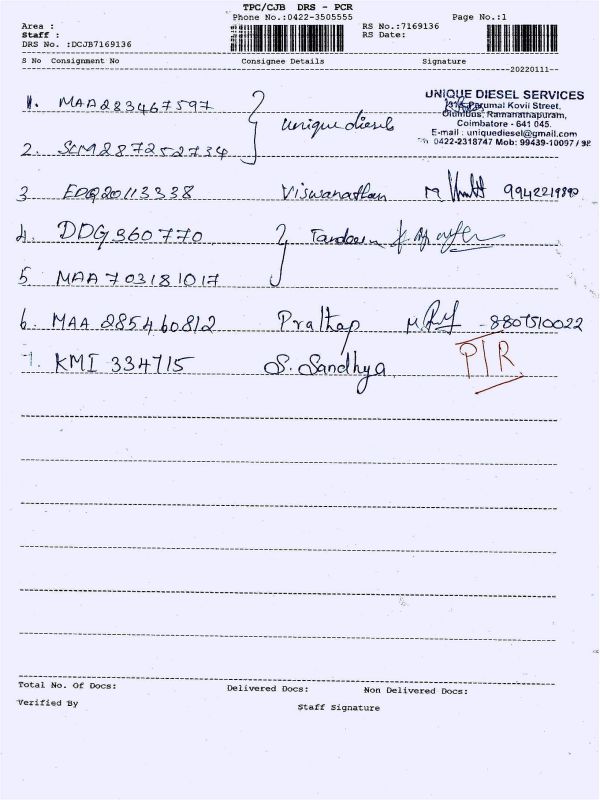 TPC/CJB DRS - PCR
Area : Phone No.:0422-3505555 RS No.:7169136 Page No.:1
Staff : RS Date:
DRS No. :DCJB7169136
S No Consignment No Consignee Details Signature
20220111
UNIQUE DIESEL SERVICES
Perumal Kovil Street,
Olumbus, Ramanathapuram,
Coimbatore - 641 045.
E-mail : uniquediesel@gmail.com
0422-2318747 Mob: 99439-10097 / 98
1. MAA283467597
unique diesel
2. SCM287252734
3 EDQ20113338 Viswanathan 9942219890
4. DDG360770
5 MAA703181017
6. MAA 285460812 Prathap 8807510022
7. KMI 334715 S. Sandhya PIR
Total No. Of Docs: Delivered Docs: Non Delivered Docs:
Verified By Staff Signature